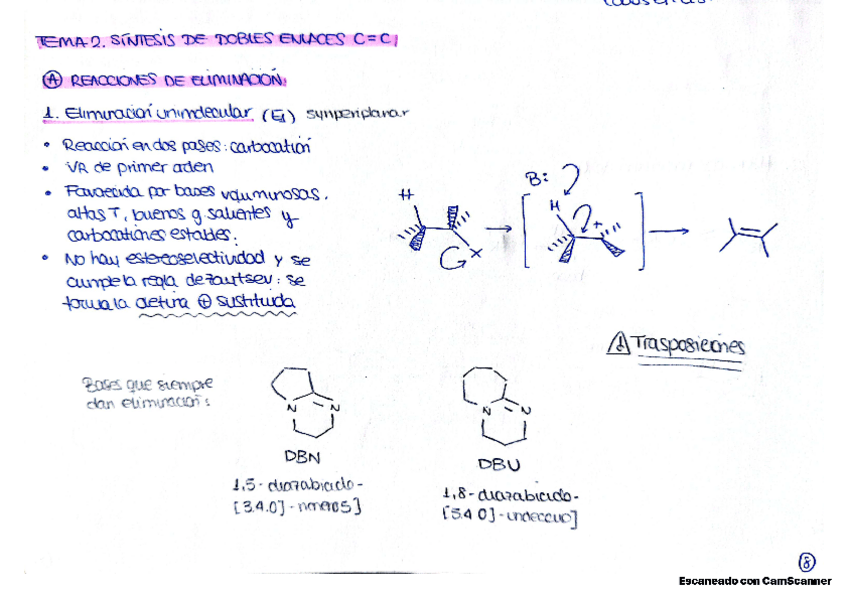 TEMA 2. SÍNTESIS DE DOBLES ENLACES C=C
Ⓐ REACCIONES DE ELIMINACIÓN
1. Eliminación unimolecular (E1) synperiplanar
• Reacción en dos pasos: carbocatión
• VR de primer orden
• Favorecida por bases voluminosas,
altas T, buenos g salientes y
carbocationes estables.
• No hay estereoselectividad y se
cumple la regla de Zaytsev: se
forma la olefina ⊕ sustituida
H
X
B:
H
+
⚠ Trasposiciones
Bases que siempre
dan eliminación:
N
N
DBN
1,5-diazabiciclo-
[3.4.0]-noneno5]
N
N
DBU
1,8-diazabiciclo-
[5.4.0]-undec
⑧
Escaneado con CamScanner